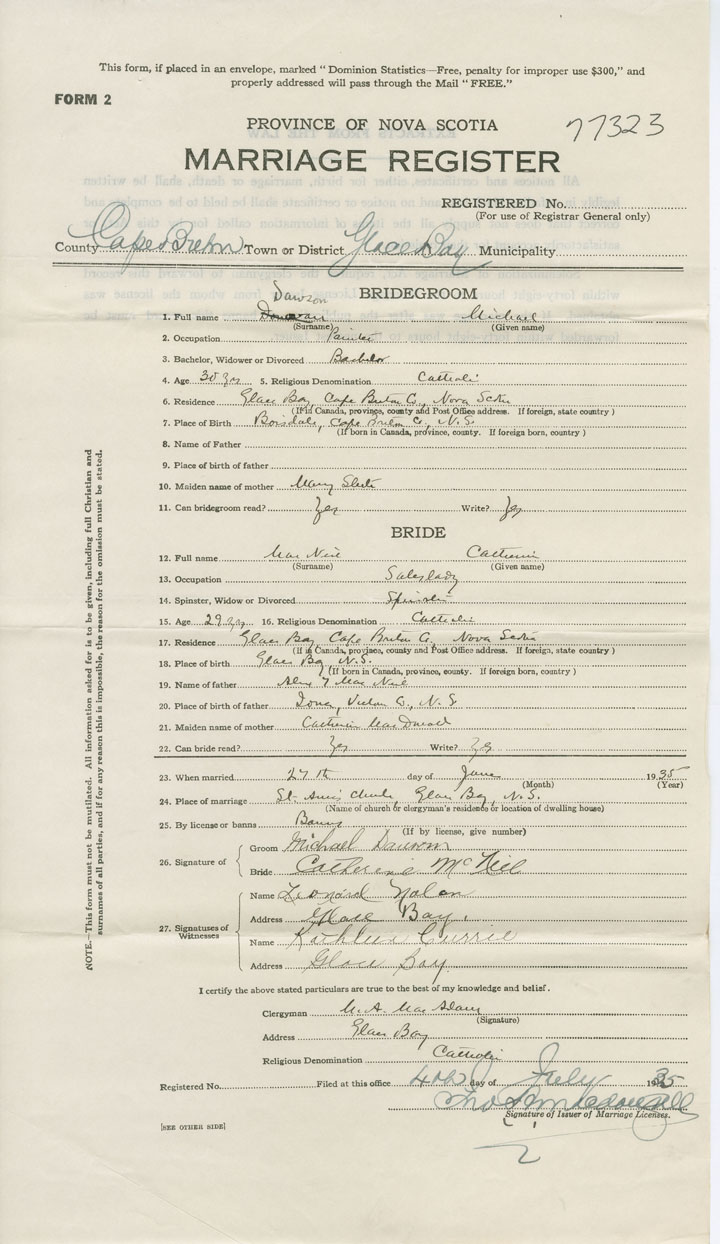 This form, if placed in an envelope, marked "Dominion Statistics—Free, penalty for improper use $300," and
properly addressed will pass through the Mail "FREE."
FORM 2
PROVINCE OF NOVA SCOTIA
77323
MARRIAGE REGISTER
REGISTERED No.
(For use of Registrar General only)
County Cape Breton Town or District Glace Bay Municipality
BRIDEGROOM
Dawson
1. Full name Donovan Michael
(Surname) (Given name)
2. Occupation Painter
3. Bachelor, Widower or Divorced Bachelor
4. Age 30 yrs 5. Religious Denomination Catholic
6. Residence Glace Bay, Cape Breton Co, Nova Scotia
(If in Canada, province, county and Post Office address. If foreign, state country)
7. Place of Birth Boisdale, Cape Breton Co, N.S.
(If born in Canada, province, county. If foreign born, country)
8. Name of Father
9. Place of birth of father
10. Maiden name of mother Mary
11. Can bridegroom read? Yes Write? Yes
BRIDE
12. Full name Mac Neil Catherine
(Surname) (Given name)
13. Occupation Saleslady
14. Spinster, Widow or Divorced Spinster
15. Age 29 yrs 16. Religious Denomination Catholic
17. Residence Glace Bay Cape Breton Co, Nova Scotia
(If in Canada, province, county and Post Office address. If foreign, state country)
18. Place of birth Glace Bay N.S.
(If born in Canada, province, county. If foreign born, country)
19. Name of father Alex Mac Neil
20. Place of birth of father Iona, Victoria Co, N.S.
21. Maiden name of mother Catherine
22. Can bride read? Yes Write? Yes
23. When married 27th day of June 1935
(Month) (Year)
24. Place of marriage St. Ann's Church, Glace Bay, N.S.
(Name of church or clergyman's residence or location of dwelling house)
25. By license or banns Banns
(If by license, give number)
26. Signature of
Groom Michael Dawson
Bride Catherine McNeil
27. Signatures of Witnesses
Name Leonard Nolan
Address Glace Bay.
Name Kathleen Currie
Address Glace Bay
I certify the above stated particulars are true to the best of my knowledge and belief.
Clergyman M. A. Mac Adam
(Signature)
Address Glace Bay
Religious Denomination Catholic
Registered No. Filed at this office 4th day of July 1935
Signature of Issuer of Marriage Licenses.
[SEE OTHER SIDE]
NOTE.—This form must not be mutilated. All information asked for is to be given, including full Christian and
surnames of all parties, and if for any reason this is impossible, the reason for the omission must be stated.